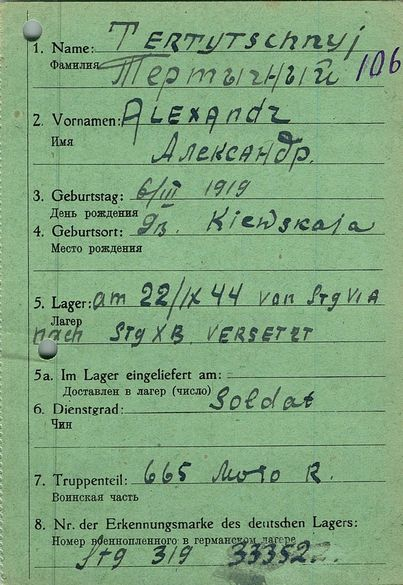 1. Name: Tertytschnyj
Фамилия Тертычный 106
2. Vornamen: Alexandr
Имя Александр.
3. Geburtstag: 6/III 1919
День рождения
4. Geburtsort: Kiewskaja
Место рождения
5. Lager: am 22/IX 44 von Stg VI A
Лагер
nach Stg X B. VERSETZT
5a. Im Lager eingeliefert am:
Доставлен в лагер (число)
6. Dienstgrad: Soldat
Чин
7. Truppenteil: 665 Moto R.
Воинская часть
8. Nr. der Erkennungsmarke des deutschen Lagers:
Номер военнопленного в германском лагере
Stg 319 33352